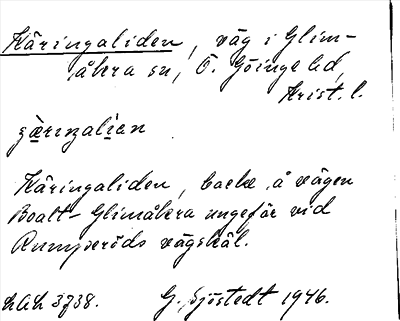 Käringaliden, väg i Glim-
åkra sn, Ö. Göinge hd,
Krist. l.
Käringaliden, backe å vägen
Boalt-Glimåkra ungefär vid
Rumperöds vägskäl.
LAL 3738. G. Sjöstedt 1946.